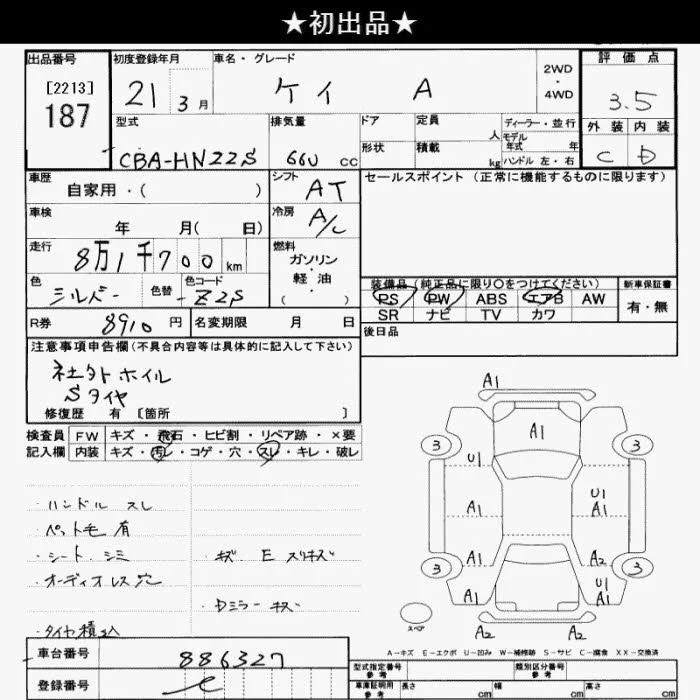 ★初出品★
出品番号
[2213]
187
初度登録年月
21 3月
車名・グレード
ケイ A
2WD
・
4WD
評価点
3.5
外装 内装
C D
型式
CBA-HN22S
排気量
660 cc
ドア
形状
定員 人
積載 kg
ディーラー・並行
モデル年式 年
ハンドル 左・右
車歴
自家用・( )
シフト
AT
セールスポイント (正常に機能するものに限ります)
車検
年 月( 日)
冷房
A/C
走行
8万1千700 km
燃料
ガソリン
・
軽油
・
( )
色
シルバー
色替
色コード
Z2S
装備品 (純正品に限り○をつけてください)
PS PW ABS エアB AW
SR ナビ TV カワ
新車保証書
有・無
R券
8910 円
名変期限 月 日
後日品
注意事項申告欄(不具合内容等は具体的に記入して下さい)
社外ホイル
Sタイヤ
修復歴 有 [箇所 ]
検査員
記入欄
FW キズ・飛石・ヒビ割・リペア跡・×要
内装 キズ・汚レ・コゲ・穴・スレ・キレ・破レ
・ハンドル スレ
・ペット毛 有
・シート シミ
・キズ E スリキズ
・オーディオレス 穴
・Dミラー キズ
・タイヤ積込
A1
A1
3 3
U1
A1
U1
A1
A1
A2
3 3
A1
U1
A1
スペア
A2 A2
A-キズ E-エクボ U-凹み W-補修跡 S-サビ C-腐食 XX-交換済
車台番号
886327
登録番号
型式指定番号
参考
類別区分番号
車庫証明用
参考
長さ cm
幅 cm
高さ cm